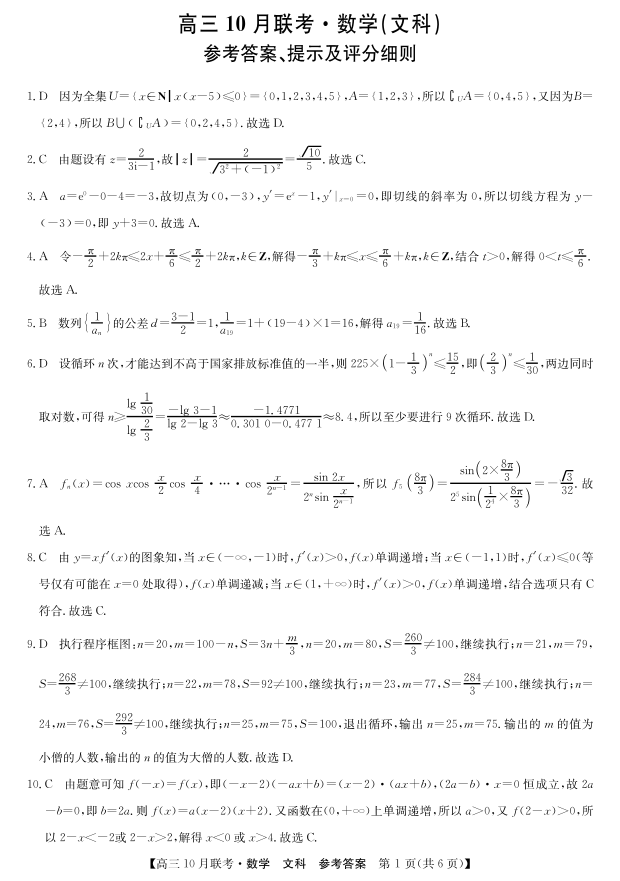 高三 10 月联考·数学(文科)
参考答案、提示及评分细则
1. D 因为全集U={x∈N|x(x-5)≤0}={0,1,2,3,4,5},A={1,2,3},所以∁UA={0,4,5},又因为B=
{2,4},所以 B∪(∁UA)={0,2,4,5}.故选 D.
2. C 由题设有 z=2/(3i-1),故|z|=2/√(3²+(-1)²)=√10/5.故选 C.
3. A a=e⁰-0-4=-3,故切点为(0,-3),y′=eˣ-1,y′|x=0=0,即切线的斜率为 0,所以切线方程为 y-
(-3)=0,即 y+3=0.故选 A.
4. A 令-π/2+2kπ≤2x+π/6≤π/2+2kπ,k∈Z,解得-π/3+kπ≤x≤π/6+kπ,k∈Z,结合 t>0,解得 0<t≤π/6.
故选 A.
5. B 数列{1/aₙ}的公差 d=(3-1)/2=1,1/a₁₉=1+(19-4)×1=16,解得 a₁₉=1/16.故选 B.
6. D 设循环 n 次,才能达到不高于国家排放标准值的一半,则 225×(1-1/3)ⁿ≤15/2,即(2/3)ⁿ≤1/30,两边同时
取对数,可得 n≥(lg 1/30)/(lg 2/3)=(-lg 3-1)/(lg 2-lg 3)≈(-1.4771)/(0.301 0-0.477 1)≈8.4,所以至少要进行 9 次循环.故选 D.
7. A fₙ(x)=cos xcos x/2 cos x/4·…·cos x/2ⁿ⁻¹=sin 2x/(2ⁿsin x/2ⁿ⁻¹),所以 f₅(8π/3)=sin(2×8π/3)/(2⁵sin(1/2⁴×8π/3))=-√3/32.故
选 A.
8. C 由 y=xf′(x)的图象知,当 x∈(-∞,-1)时,f′(x)>0,f(x)单调递增;当 x∈(-1,1)时,f′(x)≤0(等
号仅有可能在 x=0 处取得),f(x)单调递减;当 x∈(1,+∞)时,f′(x)>0,f(x)单调递增,结合选项只有 C
符合.故选 C.
9. D 执行程序框图:n=20,m=100-n,S=3n+m/3,n=20,m=80,S=260/3≠100,继续执行;n=21,m=79,
S=268/3≠100,继续执行;n=22,m=78,S=92≠100,继续执行;n=23,m=77,S=284/3≠100,继续执行;n=
24,m=76,S=292/3≠100,继续执行;n=25,m=75,S=100,退出循环,输出 n=25,m=75.输出的 m 的值为
小僧的人数,输出的 n 的值为大僧的人数.故选 D.
10. C 由题意可知 f(-x)=f(x),即(-x-2)(-ax+b)=(x-2)·(ax+b),(2a-b)·x=0 恒成立,故 2a
-b=0,即 b=2a.则 f(x)=a(x-2)(x+2).又函数在(0,+∞)上单调递增,所以 a>0,又 f(2-x)>0,所
以 2-x<-2或 2-x>2,解得 x<0 或 x>4.故选 C.
【高三 10 月联考·数学 文科 参考答案 第 1 页(共 6 页)】